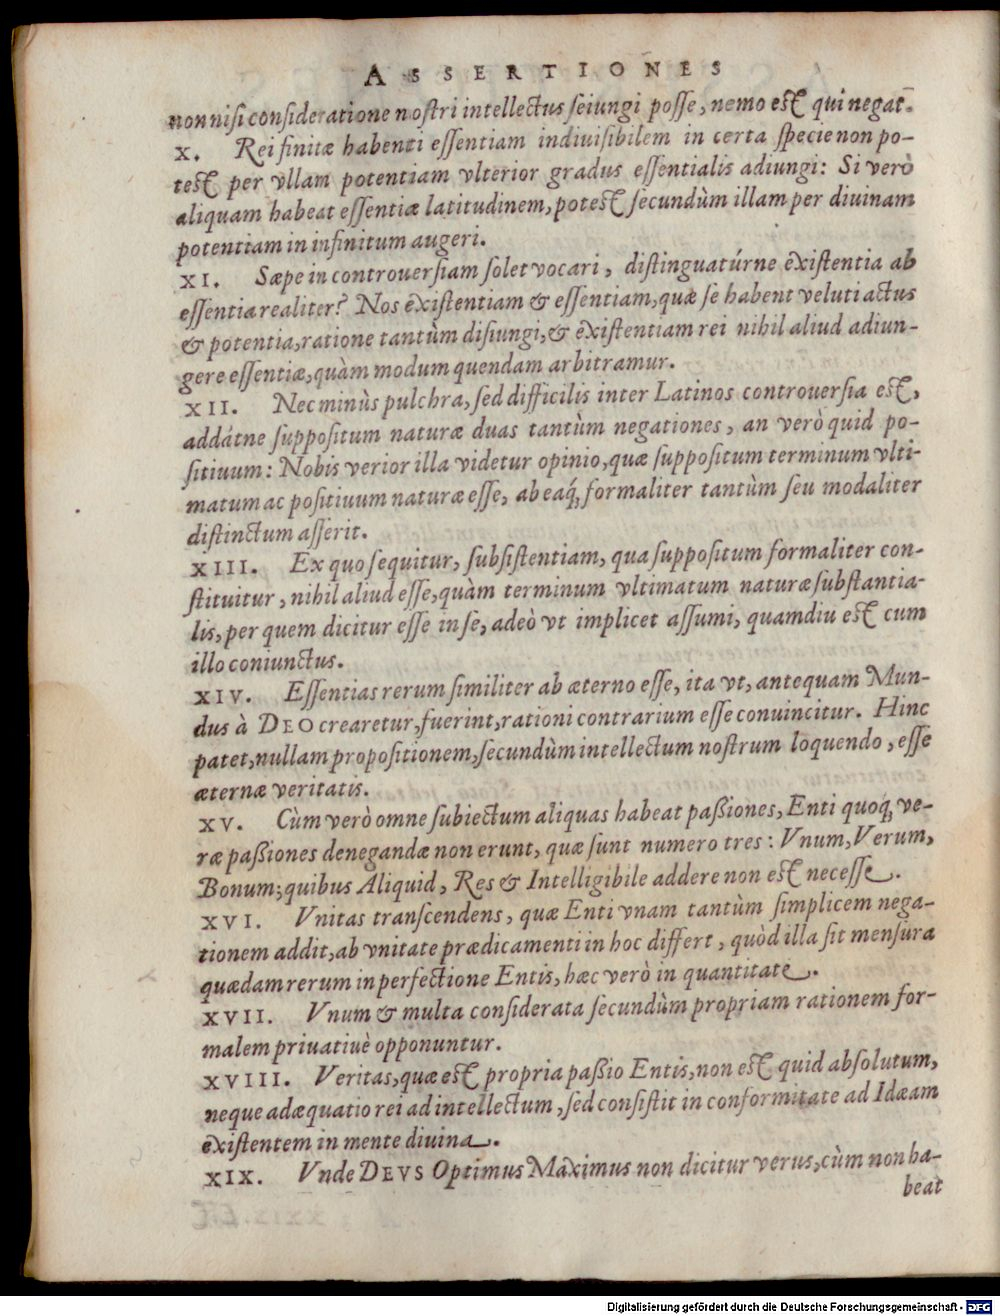 ASSERTIONES
non nisi consideratione nostri intellectus seiungi posse, nemo est qui negat.
X. Rei finitæ habenti essentiam indiuisibilem in certa specie non po-
test per vllam potentiam vlterior gradus essentialis adiungi: Si verò
aliquam habeat essentiæ latitudinem, potest secundùm illam per diuinam
potentiam in infinitum augeri.
XI. Sæpe in controuersiam solet vocari, distinguatúrne existentia ab
essentia realiter? Nos existentiam & essentiam, quæ se habent veluti actus
& potentia, ratione tantùm disiungi, & existentiam rei nihil aliud adiun-
gere essentiæ, quàm modum quendam arbitramur.
XII. Nec minùs pulchra, sed difficilis inter Latinos controuersia est,
addátne suppositum naturæ duas tantùm negationes, an verò quid po-
sitiuum: Nobis verior illa videtur opinio, quæ suppositum terminum vlti-
matum ac positiuum naturæ esse, ab eaq́; formaliter tantùm seu modaliter
distinctum asserit.
XIII. Ex quo sequitur, subsistentiam, qua suppositum formaliter con-
stituitur, nihil aliud esse, quàm terminum vltimatum naturæ substantia-
lis, per quem dicitur esse in se, adeò vt implicet assumi, quamdiu est cum
illo coniunctus.
XIV. Essentias rerum similiter ab æterno esse, ita vt, antequam Mun-
dus à DEO crearetur, fuerint, rationi contrarium esse conuincitur. Hinc
patet, nullam propositionem, secundùm intellectum nostrum loquendo, esse
æternæ veritatis.
XV. Cùm verò omne subiectum aliquas habeat paßiones, Enti quoq́; ve-
ræ paßiones denegandæ non erunt, quæ sunt numero tres: Vnum, Verum,
Bonum; quibus Aliquid, Res & Intelligibile addere non est necesse.
XVI. Vnitas transcendens, quæ Enti vnam tantùm simplicem nega-
tionem addit, ab vnitate prædicamenti in hoc differt, quòd illa sit mensura
quædam rerum in perfectione Entis, hæc verò in quantitate.
XVII. Vnum & multa considerata secundùm propriam rationem for-
malem priuatiuè opponuntur.
XVIII. Veritas, quæ est propria paßio Entis, non est quid absolutum,
neque adæquatio rei ad intellectum, sed consistit in conformitate ad Idæam
existentem in mente diuina.
XIX. Vnde DEVS Optimus Maximus non dicitur verus, cùm non ha-
beat
Digitalisierung gefördert durch die Deutsche Forschungsgemeinschaft - DFG